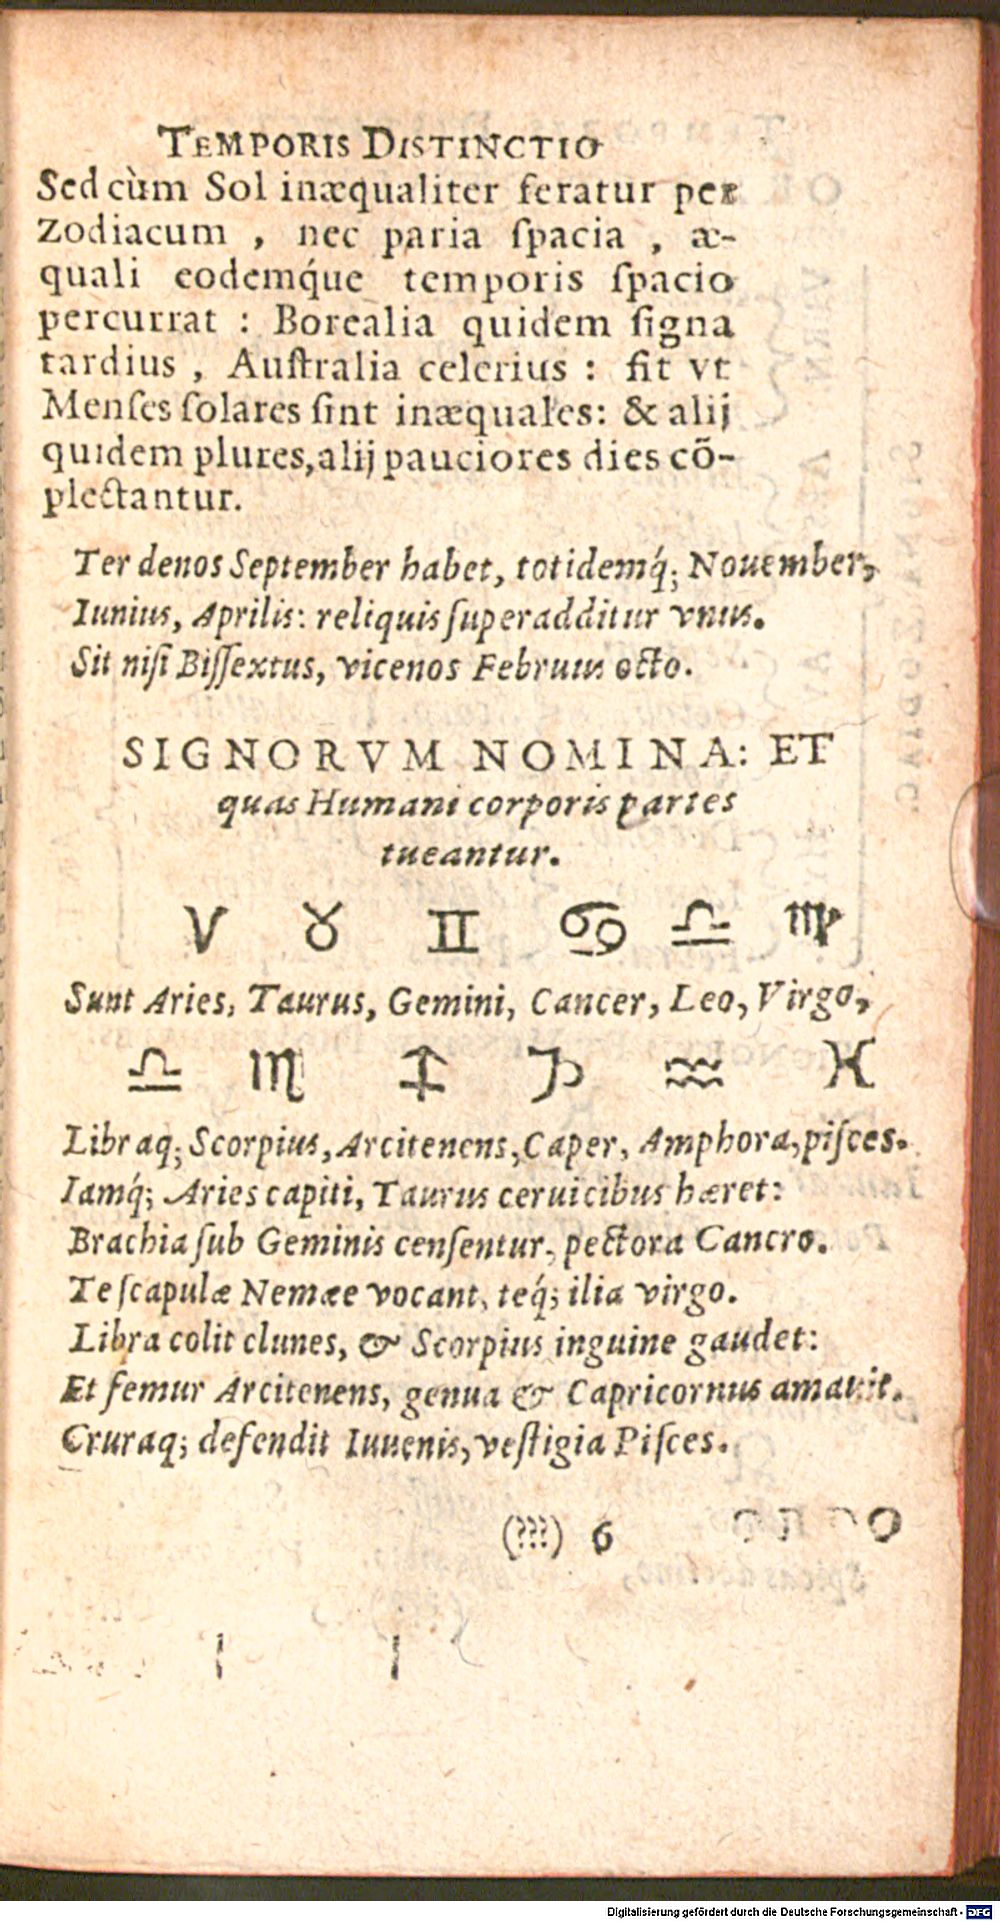 TEMPORIS DISTINCTIO
Sed cùm Sol inæqualiter feratur per
Zodiacum , nec paria ſpacia , æ-
quali eodemq́ue temporis ſpacio
percurrat : Borealia quidem ſigna
tardius , Auſtralia celerius : fit vt
Menſes ſolares ſint inæquales: & alij
quidem plures, alij pauciores dies cõ-
plectantur.
Ter denos September habet, totidemq́; Nouember,
Iunius, Aprilis: reliquis ſuperadditur vnus.
Sit niſi Biſſextus, vicenos Februus octo.
SIGNORVM NOMINA: ET
quas Humani corporis partes
tueantur.
♈ ♉ ♊ ♋ ♎ ♍
Sunt Aries, Taurus, Gemini, Cancer, Leo, Virgo,
♎ ♏ ♐ ♑ ♒ ♓
Libraq; Scorpius, Arcitenens, Caper, Amphora, piſces.
Iamq́; Aries capiti, Taurus ceruicibus hæret:
Brachia ſub Geminis cenſentur, pectora Cancro.
Te ſcapulæ Nemæe vocant, teq́; ilia virgo.
Libra colit clunes, & Scorpius inguine gaudet:
Et femur Arcitenens, genua & Capricornus amauit.
Cruraq; defendit Iuuenis, veſtigia Piſces.
(???) 6
Digitalisierung gefördert durch die Deutsche Forschungsgemeinschaft - DFG